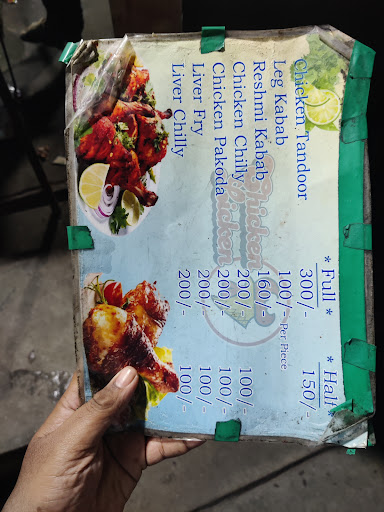 * Full * * Half
Chicken Tandoor 300/- 150/-
Leg Kabab 100/- Per Piece
Reshmi Kabab 160/-
Chicken Chilly 200/- 100/-
Chicken Pakoda 200/- 100/-
Liver Fry 200/- 100/-
Liver Chilly 200/- 100/-